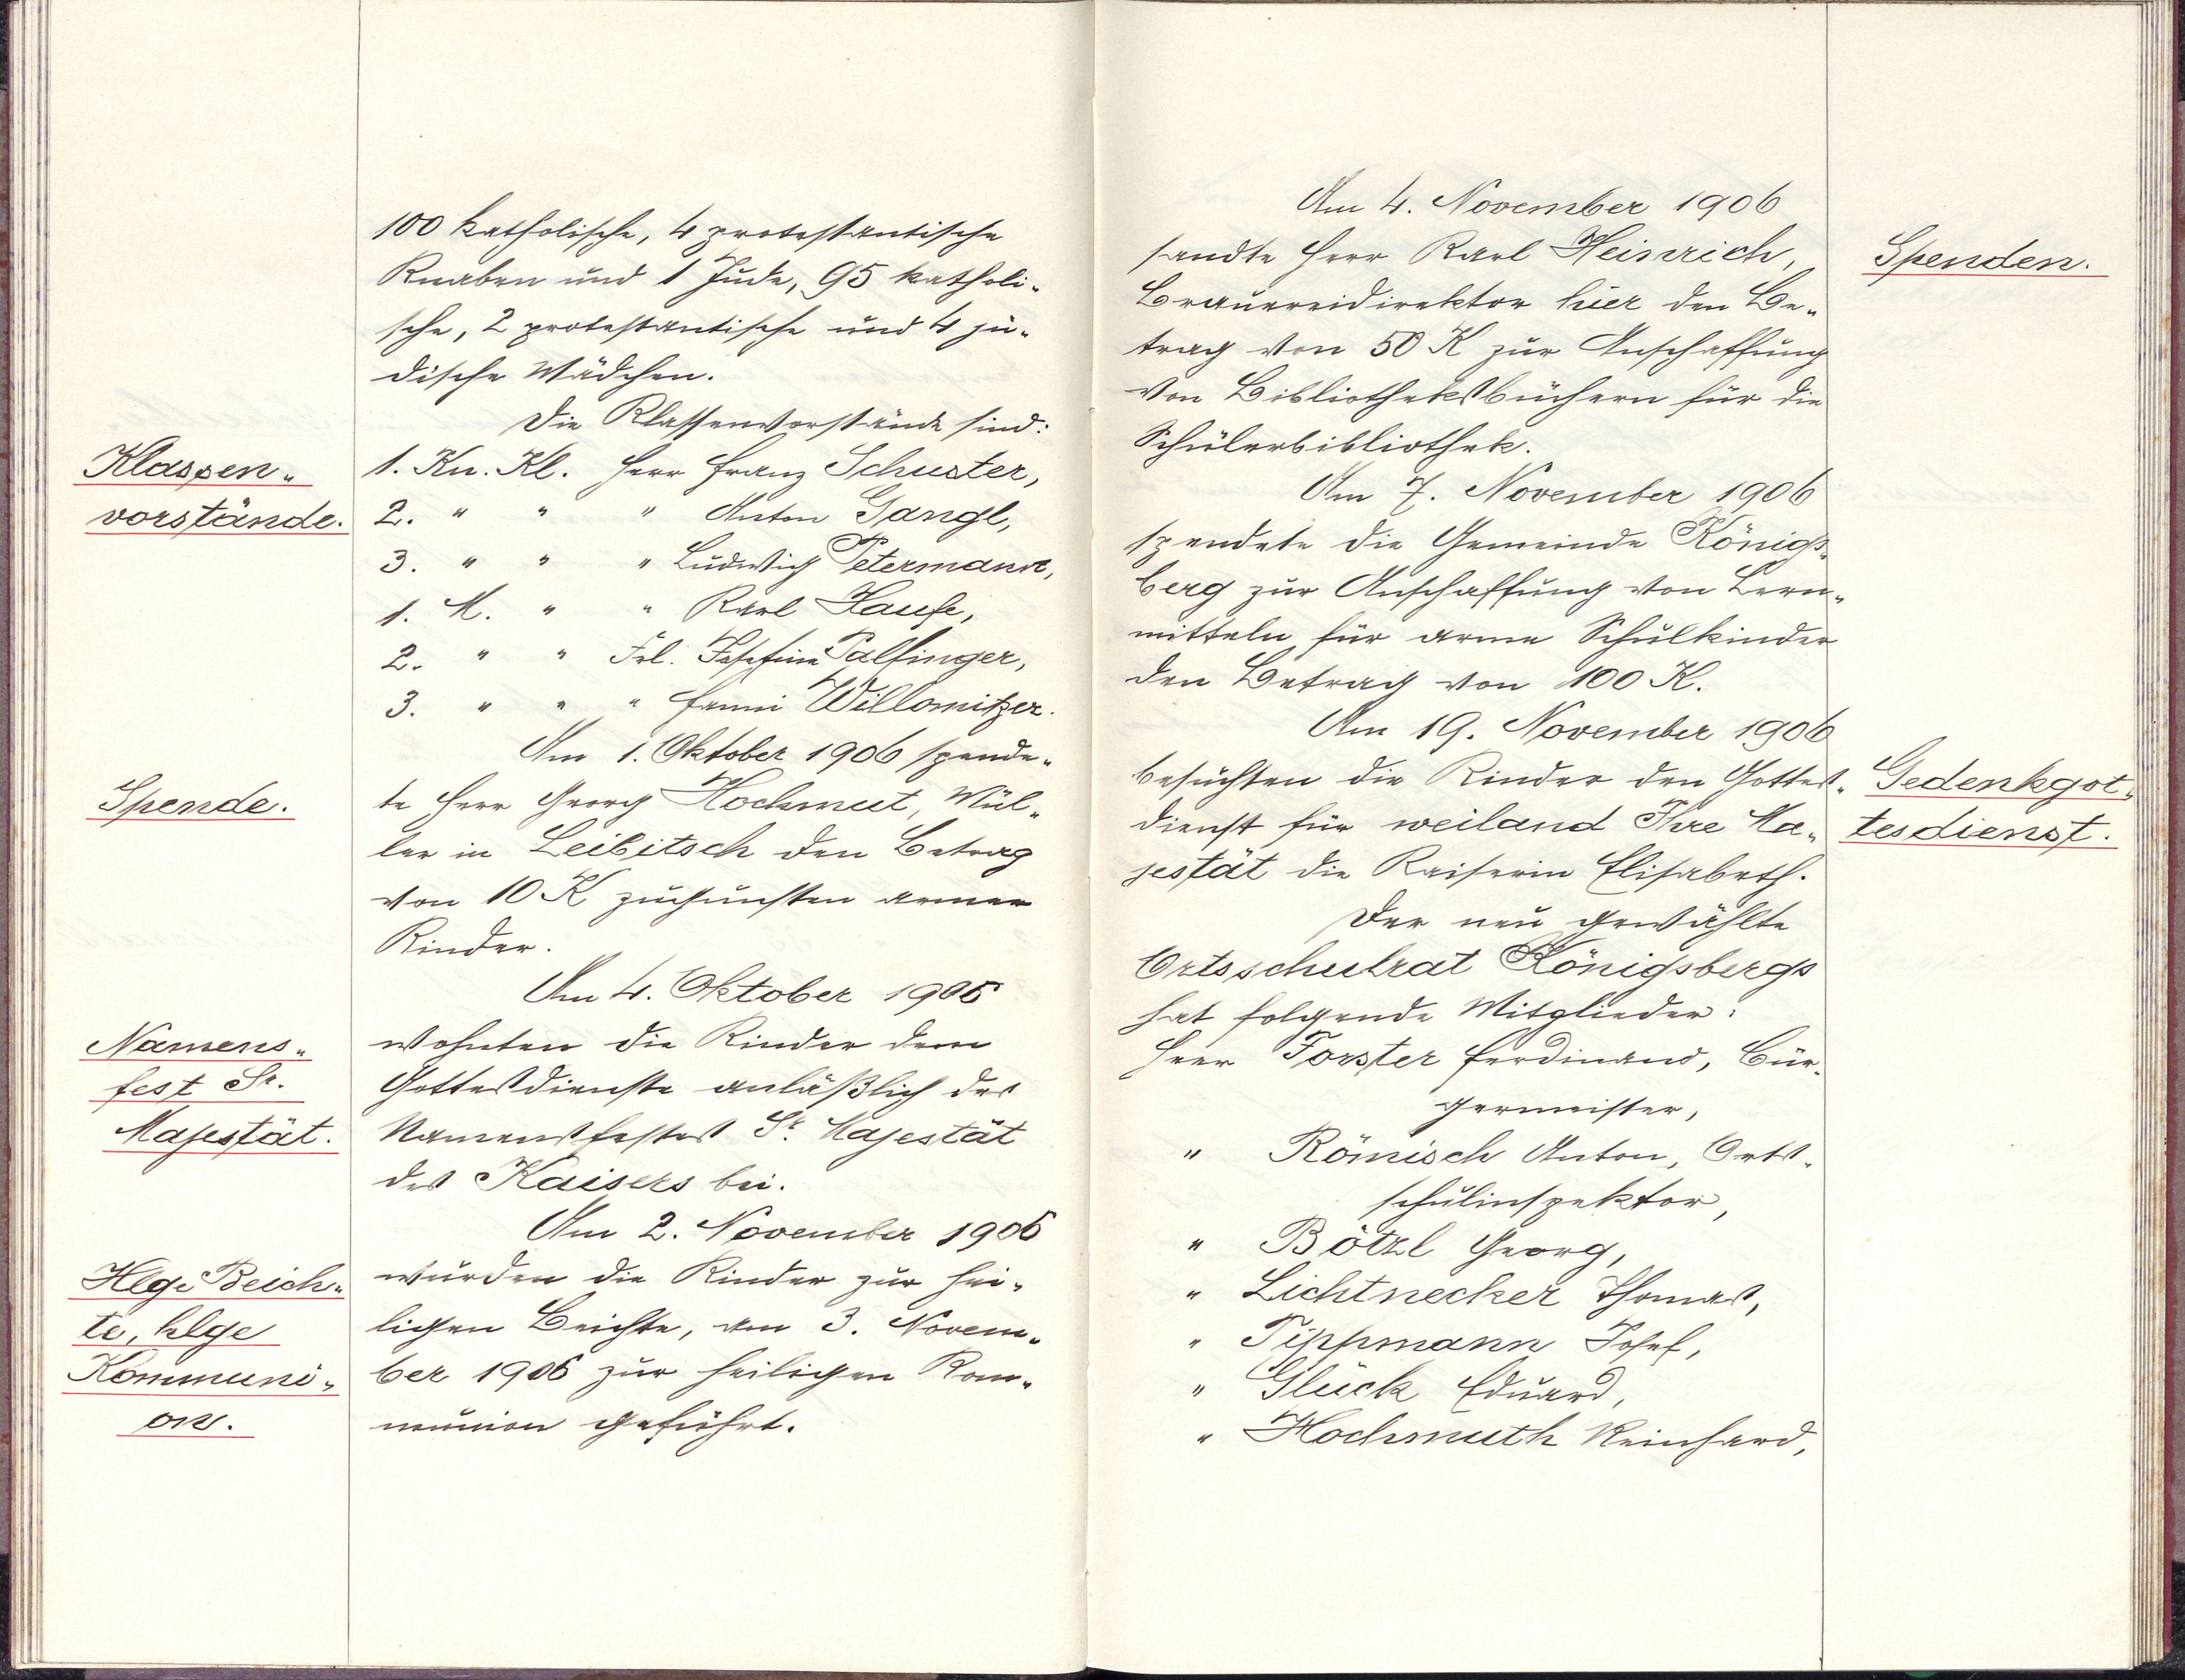 100 katholische, 4 protestantische
Knaben und 1 Jude, 95 katholi-
sche, 2 protestantische und 4 jü-
dische Mädchen.
Die Klassenvorstände sind:
Klassen-
vorstände.
1. Kn. Kl. Herr Franz Schuster,
2. " " " Anton Gangl,
3. " " " Ludwig Petermann,
1. M. " " Karl Haufe,
2. " " Frl. Josefine Palfinger,
3. " " " Fanni Willomitzer.
Am 1. Oktober 1906 spende-
Spende.
te Herr Georg Hochmut, Mül-
ler in Leibitsch den Betrag
von 10 K zugunsten armer
Kinder.
Am 4. Oktober 1906
Namens-
fest Sr.
Majestät.
wohnten die Kinder dem
Gottesdienste anläßlich des
Namensfestes Sr. Majestät
des Kaisers bei.
Am 2. November 1906
Hlge Beich-
te, hlge
Kommuni-
on.
wurden die Kinder zur hei-
ligen Beichte, am 3. Novem-
ber 1906 zur heiligen Kom-
munion geführt.
Am 4. November 1906
sandte Herr Karl Heinrich,
Spenden.
Brauereidirektor hier den Be-
trag von 50 K zur Anschaffung
von Bibliotheksbüchern für die
Schülerbibliothek.
Am 7. November 1906
spendete die Gemeinde Königs-
berg zur Anschaffung von Lern-
mitteln für arme Schulkinder
den Betrag von 100 K.
Am 19. November 1906
besuchten die Kinder den Gottes-
Gedenkgot-
tesdienst.
dienst für weiland Ihre Ma-
jestät die Kaiserin Elisabeth.
Der neu gewählte
Ortsschulrat Königsbergs
hat folgende Mitglieder:
Herr Forster Ferdinand, Bür-
germeister,
" Römisch Anton, Orts-
schulinspektor,
" Bötzl Georg,
" Lichtnecker Thomas,
" Tippmann Josef,
" Glück Eduard,
" Hochmuth Reinhard,